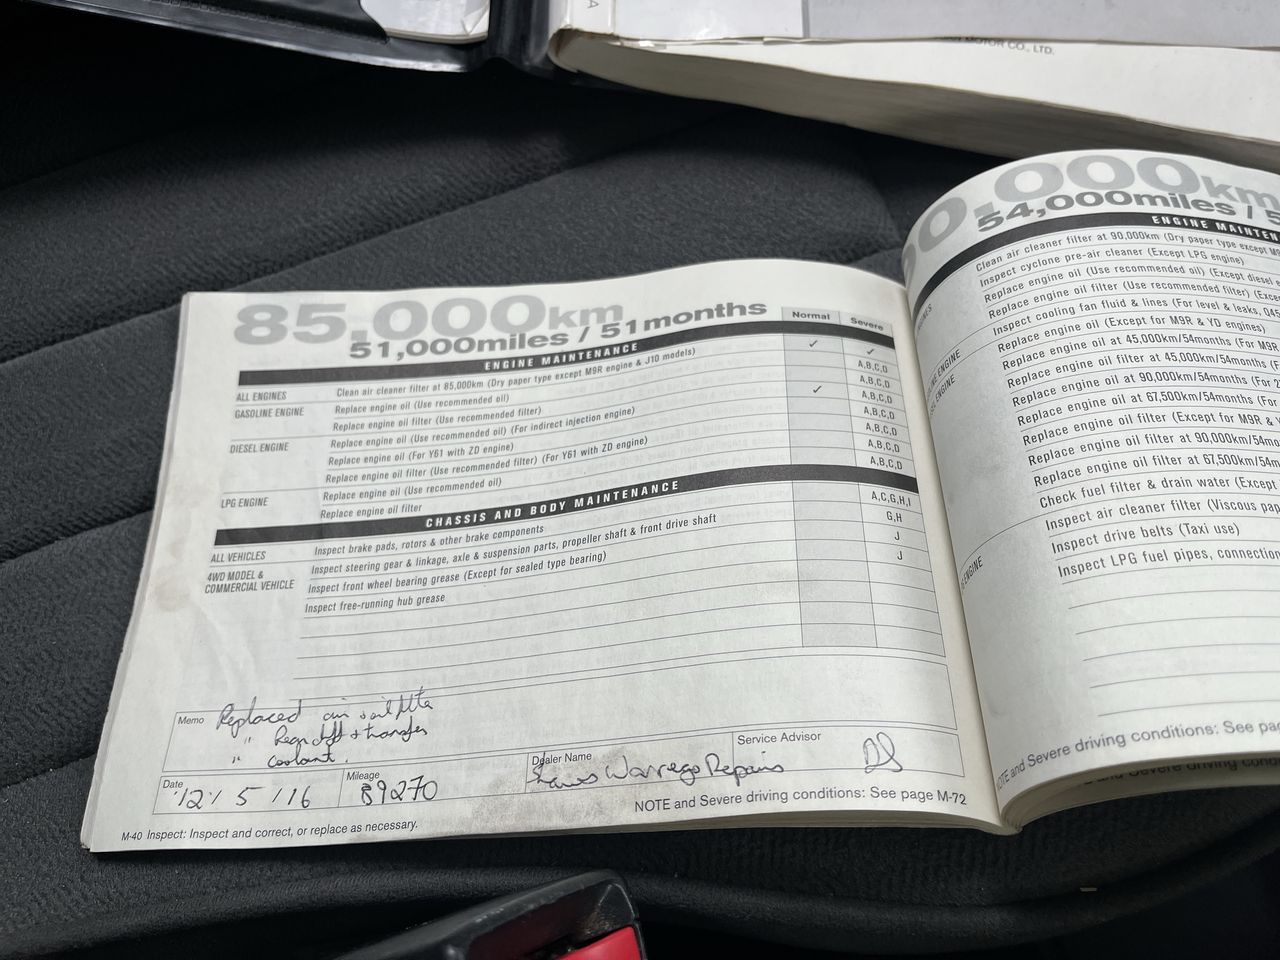 MOTOR CO., LTD.
85,000km
51,000miles / 51months
Normal
Severe
ENGINE MAINTENANCE
ALL ENGINES
Clean air cleaner filter at 85,000km (Dry paper type except M9R engine & J10 models)
GASOLINE ENGINE
Replace engine oil (Use recommended oil)
A,B,C,D
Replace engine oil filter (Use recommended filter)
A,B,C,D
DIESEL ENGINE
Replace engine oil (Use recommended oil) (For indirect injection engine)
A,B,C,D
Replace engine oil (For Y61 with ZD engine)
A,B,C,D
Replace engine oil filter (Use recommended filter) (For Y61 with ZD engine)
A,B,C,D
LPG ENGINE
Replace engine oil (Use recommended oil)
A,B,C,D
Replace engine oil filter
A,B,C,D
CHASSIS AND BODY MAINTENANCE
ALL VEHICLES
Inspect brake pads, rotors & other brake components
A,C,G,H,I
Inspect steering gear & linkage, axle & suspension parts, propeller shaft & front drive shaft
G,H
4WD MODEL &
COMMERCIAL VEHICLE
Inspect front wheel bearing grease (Except for sealed type bearing)
J
Inspect free-running hub grease
J
Memo Replaced air + oil filter
" Rear diff + transfer
" coolant.
Date
12 / 5 / 16
Mileage
89270
Dealer Name
Warrego Repairs
Service Advisor
NOTE and Severe driving conditions: See page M-72
M-40 Inspect: Inspect and correct, or replace as necessary.
0,000km
54,000miles / 5
ENGINE MAINTEN
Clean air cleaner filter at 90,000km (Dry paper type except M9
Inspect cyclone pre-air cleaner (Except LPG engine)
Replace engine oil (Use recommended oil) (Except diesel
Replace engine oil filter (Use recommended filter) (Exce
Inspect cooling fan fluid & lines (For level & leaks, Q45
Replace engine oil (Except for M9R & YD engines)
Replace engine oil at 45,000km/54months (For M9R
Replace engine oil filter at 45,000km/54months (F
Replace engine oil at 90,000km/54months (For 2
Replace engine oil at 67,500km/54months (For
Replace engine oil filter (Except for M9R & Y
Replace engine oil filter at 90,000km/54mo
Replace engine oil filter at 67,500km/54m
Check fuel filter & drain water (Except
Inspect air cleaner filter (Viscous pap
Inspect drive belts (Taxi use)
Inspect LPG fuel pipes, connection
NOTE and Severe driving conditions: See pag